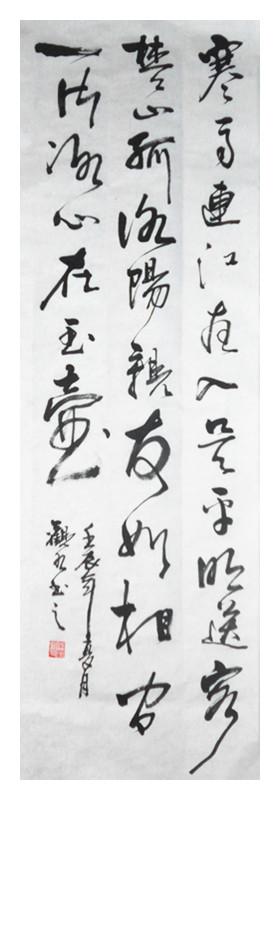 寒雨連江夜入吳平明送客
楚山孤洛陽親友如相問
一片冰心在玉壺
壬辰年夏月
觀 書之